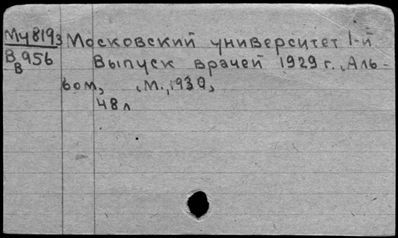 Му819з Московский университет 1-й
В956 Выпуск врачей 1929 г. Аль-
В бом, М., 1930,
48 л